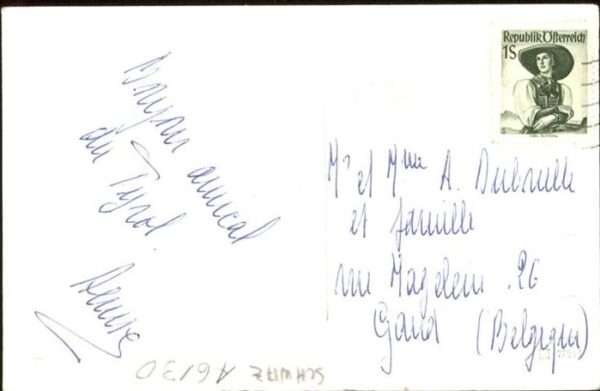 Bonjour amical
du Tyrol.
Denise
Republik Österreich
1S
Mr et Mme A. Dubrulle
et famille
rue Magelein 26
Gand (Belgique)
SCHWITZ
A6130